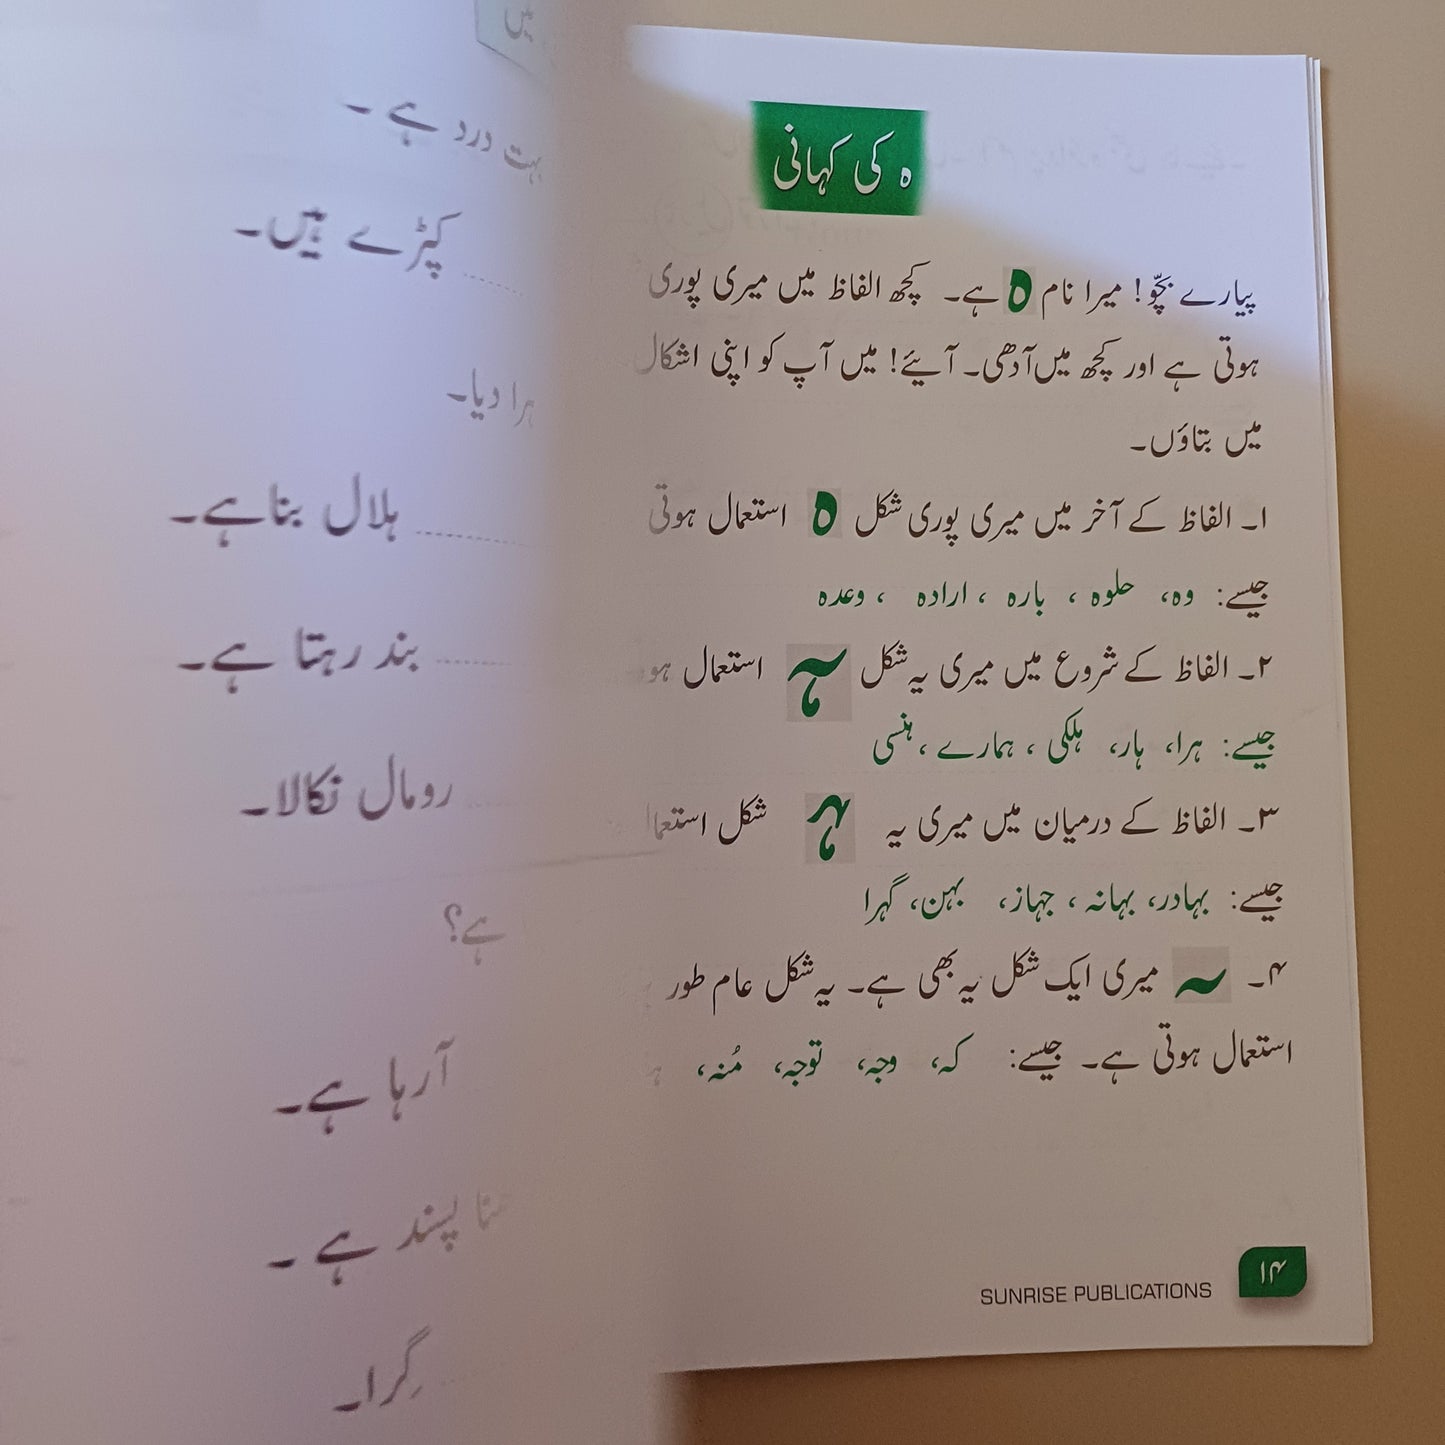 ہ کی کہانی
پیارے بچّو! میرا نام ہ ہے۔ کچھ الفاظ میں میری پوری
ہوتی ہے اور کچھ میں آدھی۔ آیئے! میں آپ کو اپنی اشکال
میں بتاؤں۔
۱۔ الفاظ کے آخر میں میری پوری شکل ہ استعمال ہوتی
جیسے: وہ، حلوہ، بارہ، ارادہ، وعدہ
۲۔ الفاظ کے شروع میں میری یہ شکل ہـ استعمال
جیسے: ہرا، ہار، ہلکی، ہمارے، ہنسی
۳۔ الفاظ کے درمیان میں میری یہ ـہـ شکل
جیسے: بہادر، بہانہ، جہاز، بہن، گہرا
۴۔ ـہ میری ایک شکل یہ بھی ہے۔ یہ شکل عام طور
استعمال ہوتی ہے۔ جیسے: کہ، وجہ، توجہ، مُنہ،
SUNRISE PUBLICATIONS
۱۴
میں
بہت درد ہے۔
کپڑے ہیں۔
ہرا دیا۔
ہلال بنا ہے۔
بند رہتا ہے۔
رومال نکالا۔
ہے؟
آرہا ہے۔
پسند ہے۔
گرا۔